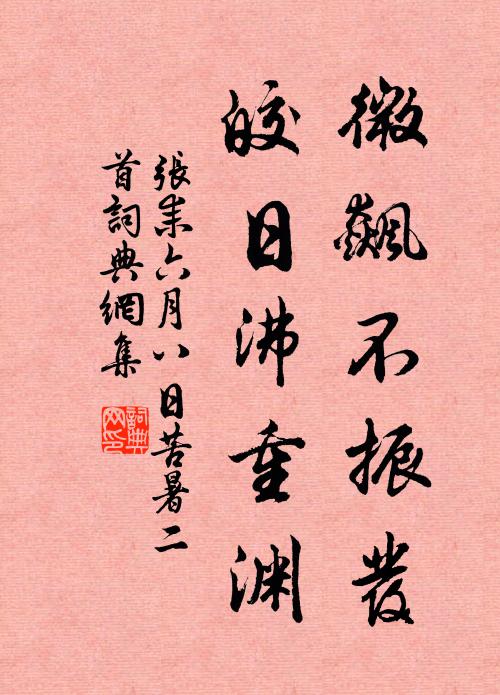 微飆不振發
皎日沸重淵
張耒六月八日苦暑二
首詞典網集
詞典
网印